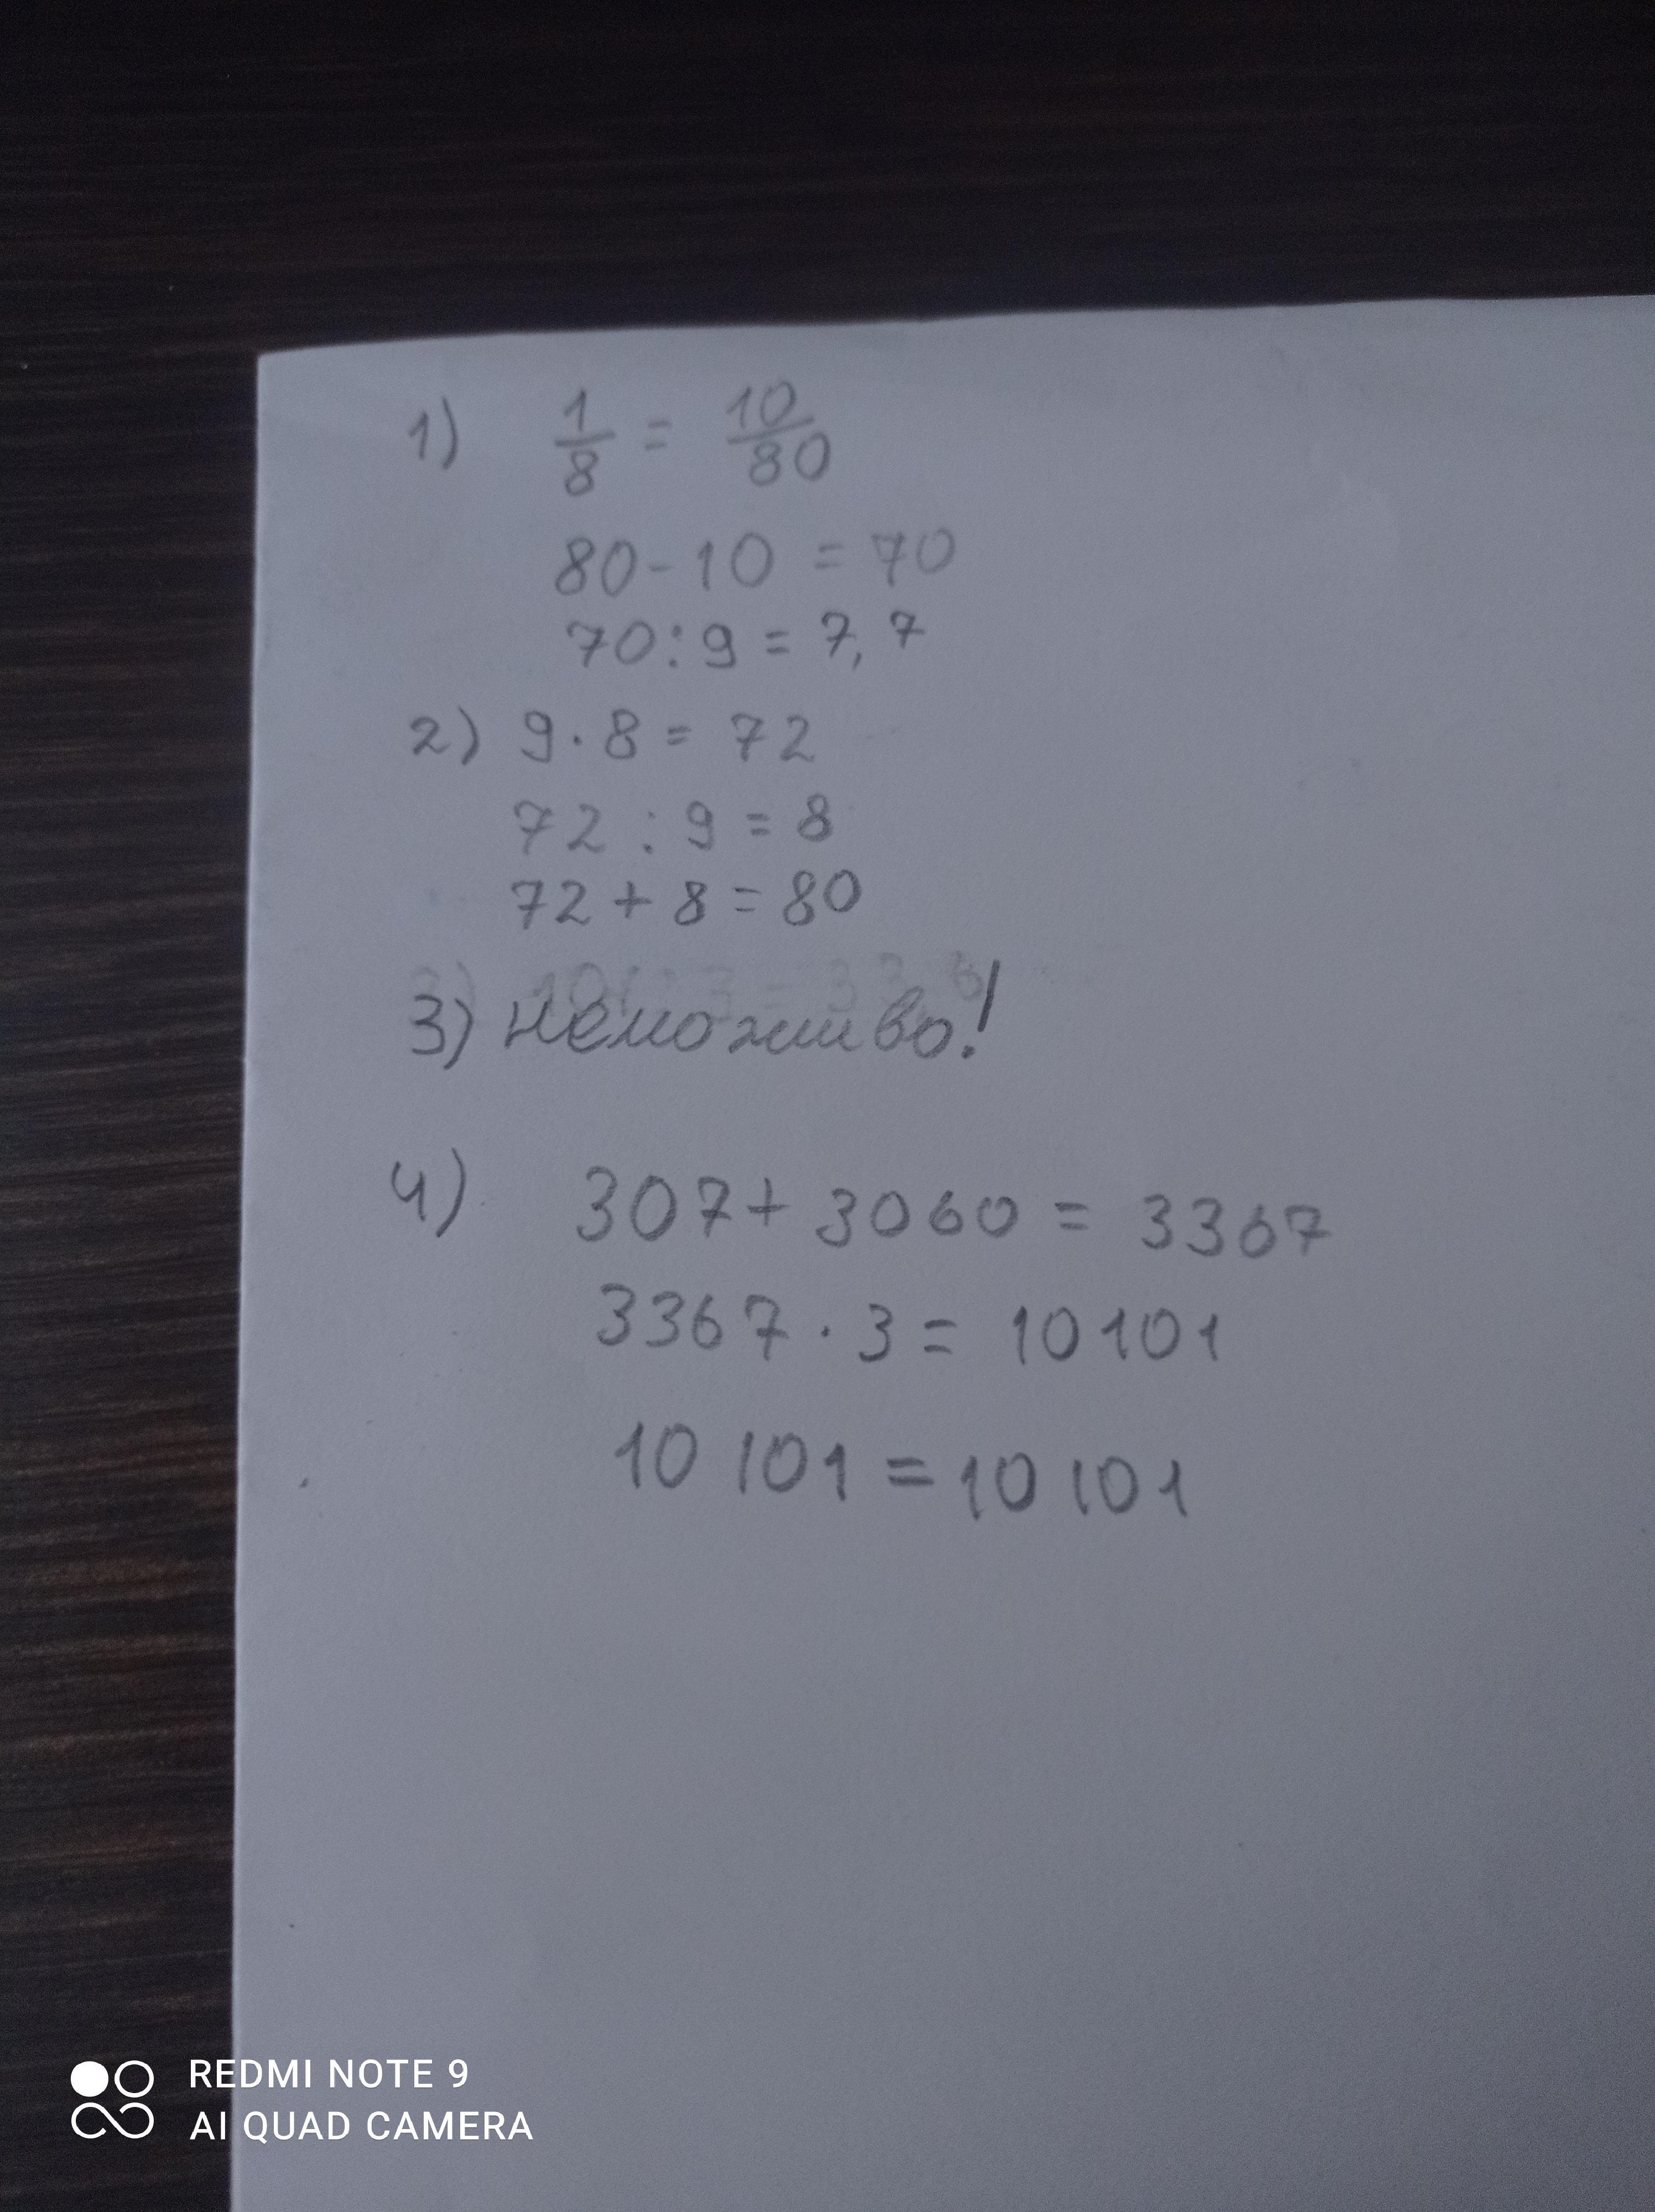 1) 1/8 = 10/80
80 - 10 = 70
70 : 9 = 7,7
2) 9 · 8 = 72
72 : 9 = 8
72 + 8 = 80
3) неможливо!
4) 307 + 3060 = 3367
3367 · 3 = 10101
10 101 = 10 101
REDMI NOTE 9
AI QUAD CAMERA